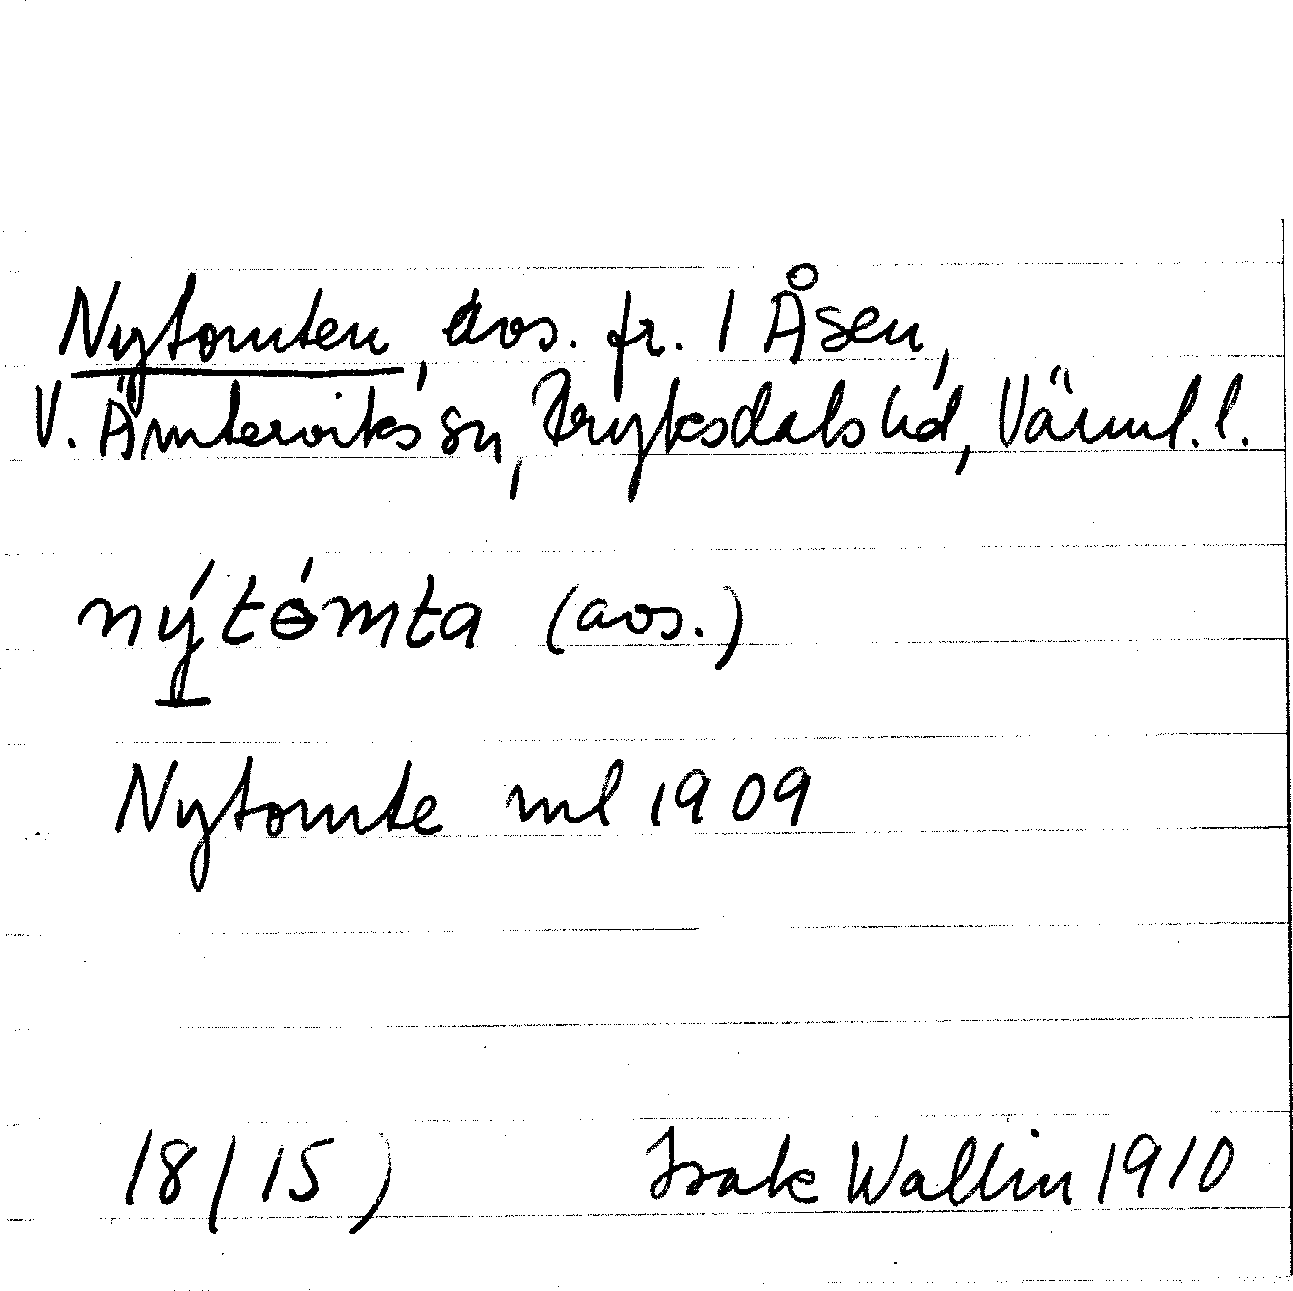 Nytomten, avs. fr. 1 Åsen,
V. Ämterviks sn, Fryksdals hd, Värml. l.
nýtɵ́mta (avs.)
Nytomte ml 1909
18/15) Isak Wallin 1910